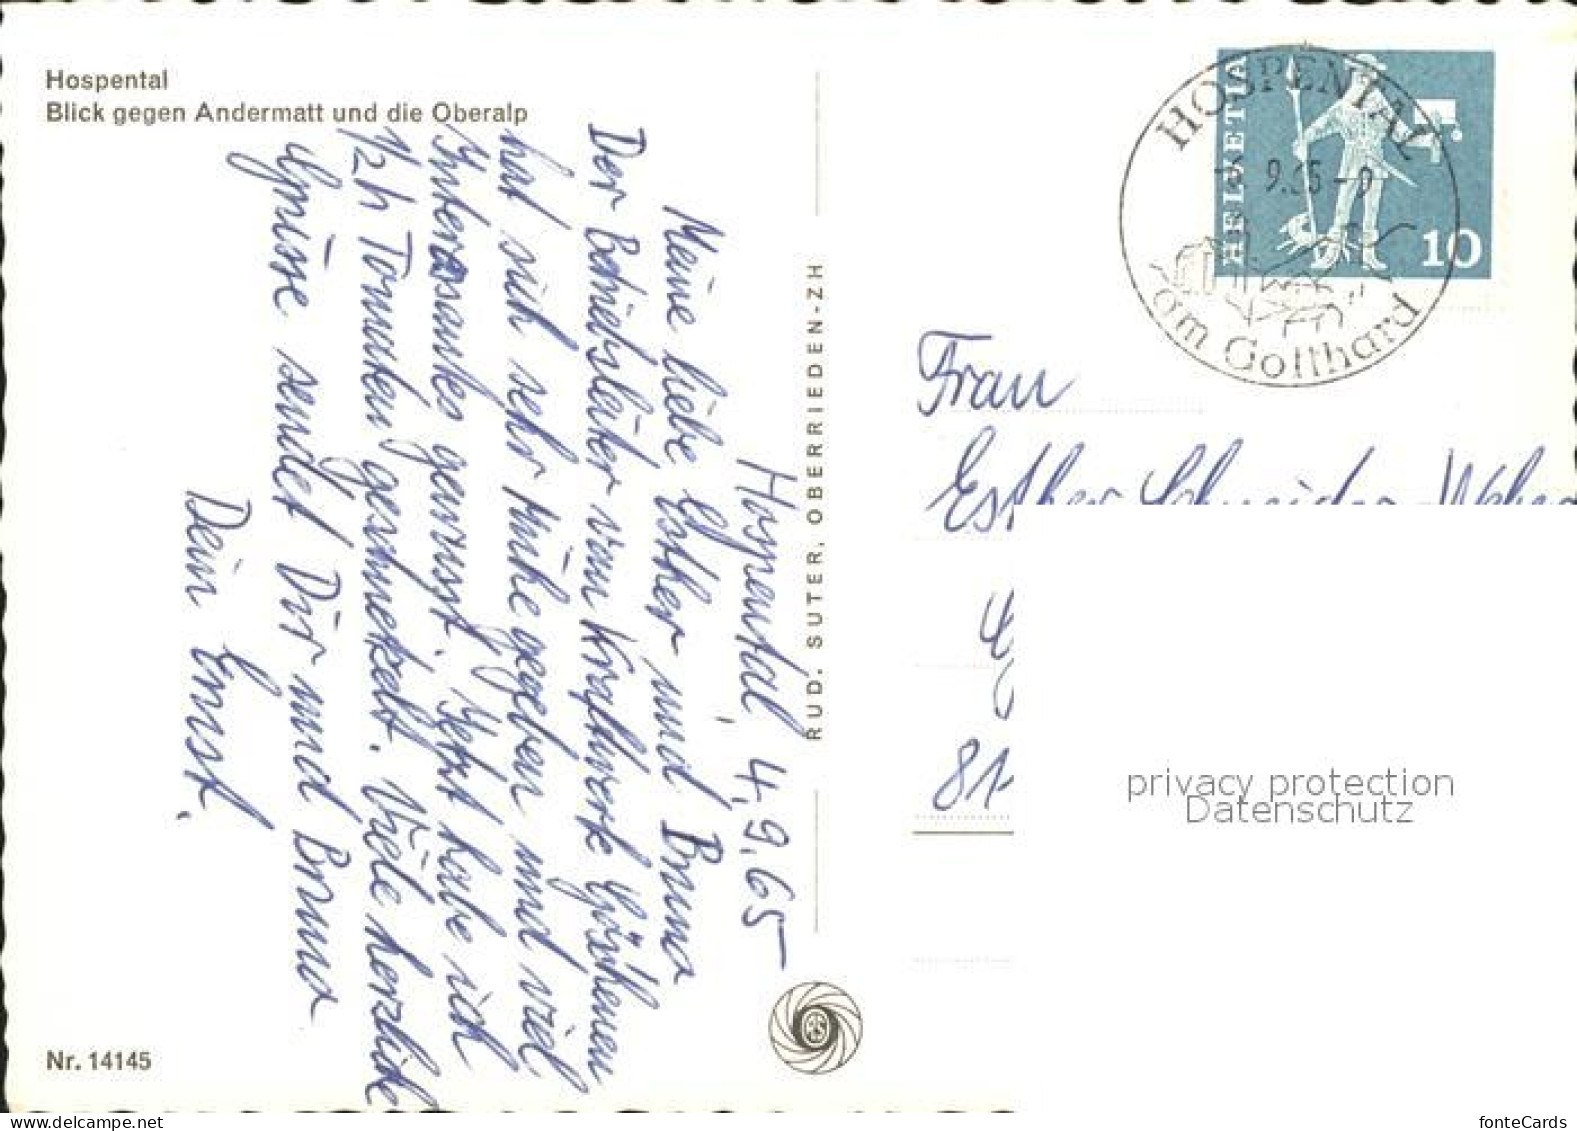 Hospental
Blick gegen Andermatt und die Oberalp
Hospental, 4.9.65
Meine liebe Esther und Bruno
Der Betriebsleiter vom Kraftwerk Göschenen
hat sich sehr Mühe gegeben und viel
Interessantes gewusst. Jetzt habe ich
1/2 h Tomaten geschneckelt. Viele herzliche
Grüsse sendet Dir und Bruno
Dein Ernst.
RUD. SUTER, OBERRIEDEN-ZH
Nr. 14145
HELVETIA
10
HOSPENTAL
9.65
am Gotthard
Frau
Esther Schneider
81
privacy protection
Datenschutz
fonteCards